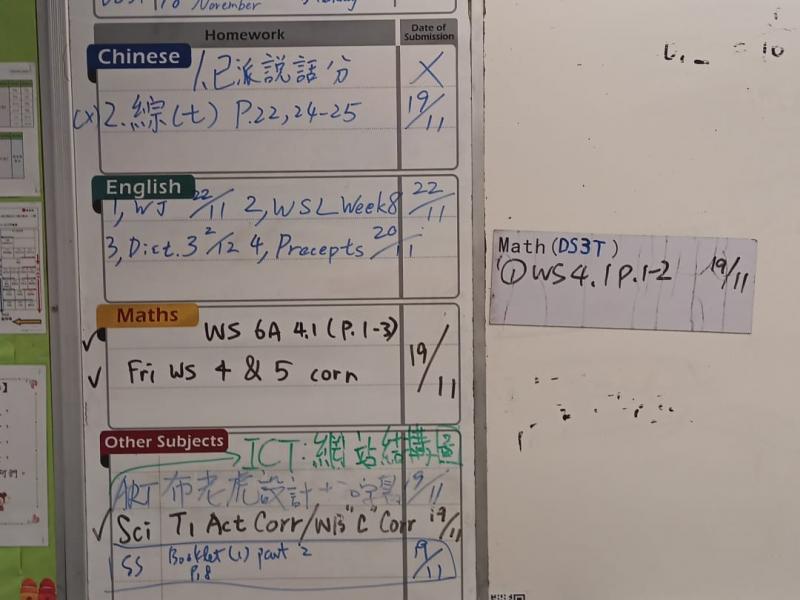 November
Homework
Date of Submission
Chinese
1.已派說話分 X
(x) 2.綜(七) P.22,24-25 19/11
English
1, WJ 22/11 2, WSL Week8 22/11
3, Dict.3 2/12 4, Precepts 20/11
Maths
WS 6A 4.1 (P.1-3)
Fri WS 4 & 5 corn 19/11
Other Subjects
ICT: 網站結構圖
ART 布老虎設計+ 19/11
Sci T1 Act Corr/WB "C" Corr 19/11
SS Booklet(1) part 2 19/11
P.8
Math(DS3T)
① WS 4.1 P.1-2 19/11